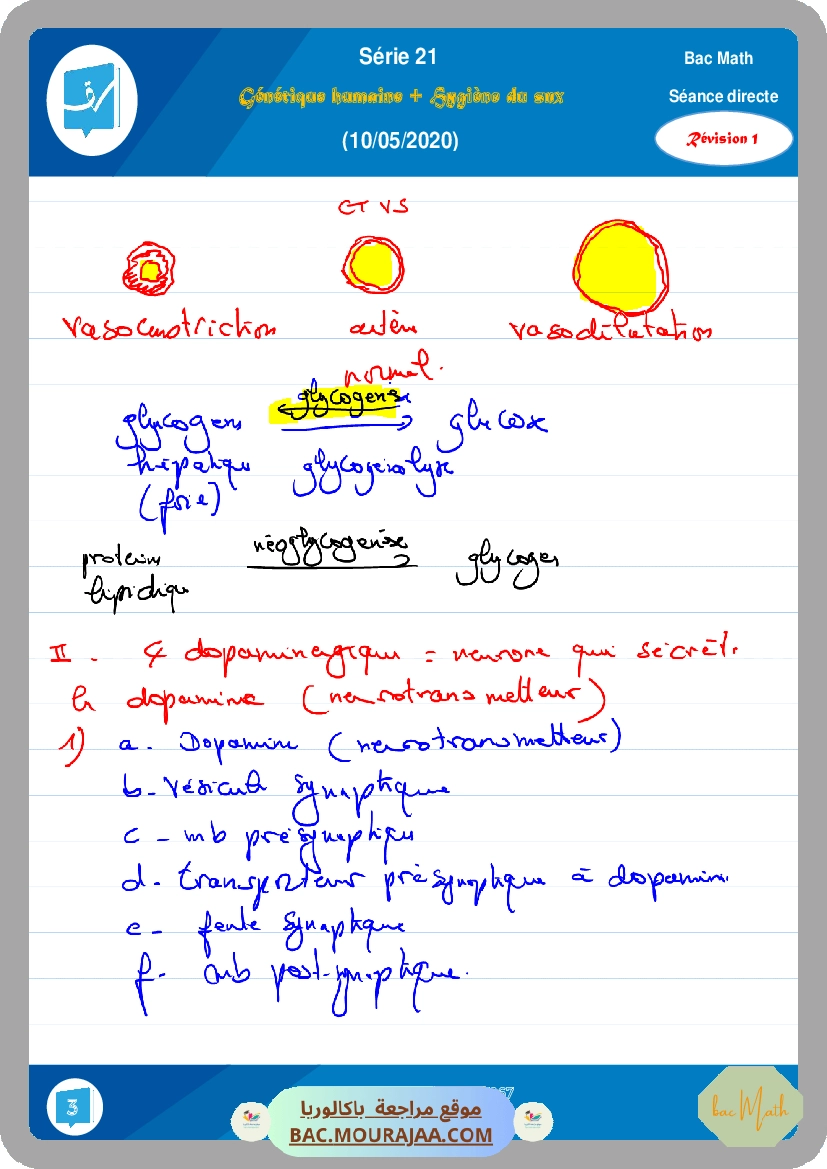 Série 21
Bac Math
Génétique humaine + Hygiène du snx
Séance directe
(10/05/2020)
Révision 1
CT VS
vasoconstriction artère vasodilatation
normal.
glycogène glycogenèse glucose
hépatique glycogénolyse
(foie)
protéines néoglycogenèse glycogen
lipidique
II. dopaminergique = neurone qui sécrète
la dopamine (neurotransmetteur)
1) a. Dopamine (neurotransmetteur)
b- Vésicule synaptique
c - mb présynaptique
d- transporteur présynaptique à dopamine
e - fente synaptique
f- mb post-synaptique.
3
موقع مراجعة باكالوريا
BAC.MOURAJAA.COM
bac Math